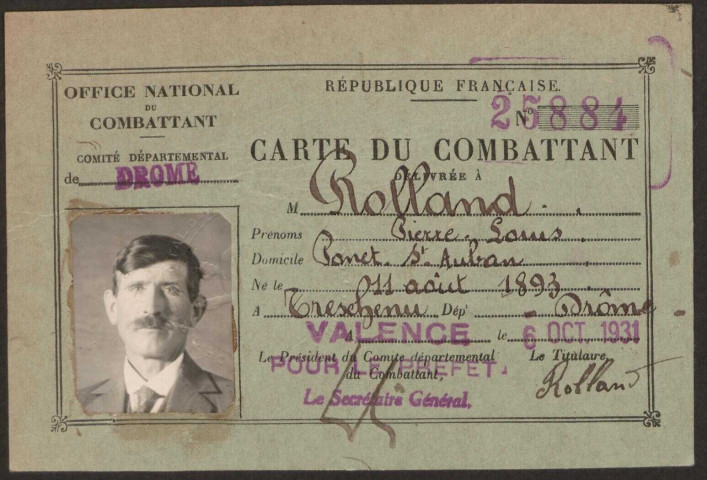 OFFICE NATIONAL
DU
COMBATTANT
COMITÉ DÉPARTEMENTAL
de DROME
RÉPUBLIQUE FRANÇAISE.
N° 25884
CARTE DU COMBATTANT
DÉLIVRÉE À
M Rolland
Prénoms Pierre-Louis
Domicile Ponet-St-Auban
Né le 11 août 1893
A Treschenu Dépt - Drôme -
A VALENCE le 6 OCT. 1931
Le Président du Comité départemental
du Combattant,
POUR LE PREFET.
Le Secrétaire Général.
Le Titulaire,
Rolland